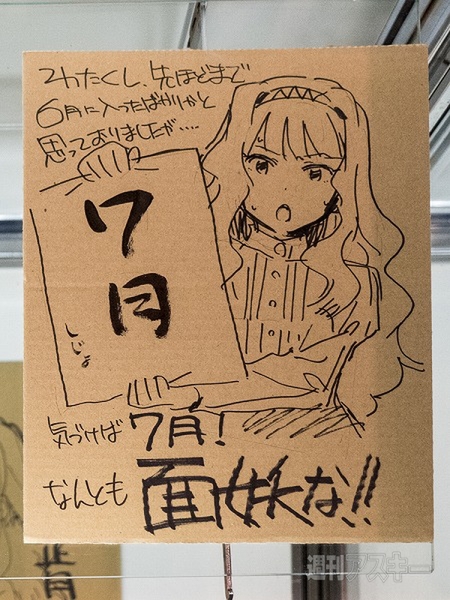 わたくし、先ほどまで
6月に入ったばかりかと
思っておりましたが....
7
月
しじょ
気づけば 7月!
なんとも 面妖な!!
週刊アスキー